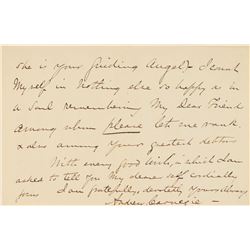 she is your guiding Angel & I count
Myself in nothing else so happy as in
a Soul remembering My Dear Friend
among whom please let me rank
& also among your greatest debtors
With every good wish, in which I am
asked to tell you My dear self cordially
joins I am gratefully, devotedly yours always
Andrew Carnegie